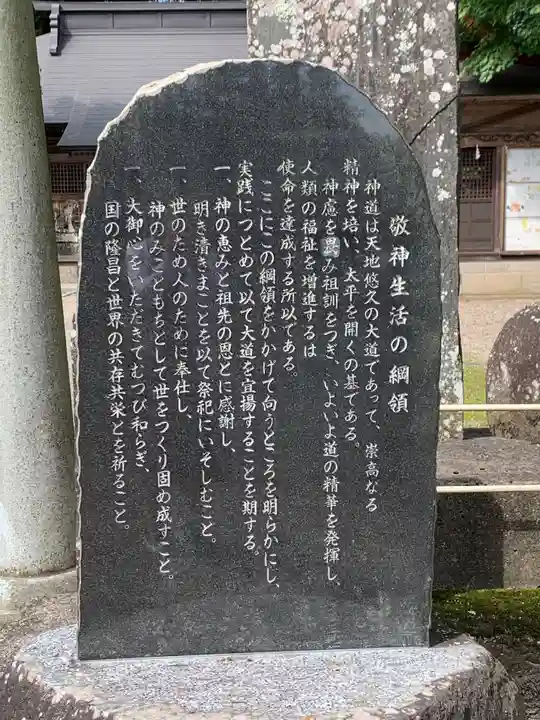 敬神生活の綱領
神道は天地悠久の大道であって、崇高なる
精神を培い、太平を開くの基である。
神慮を畏み祖訓をつぎ、いよいよ道の精華を発揮し、
人類の福祉を増進するは
使命を達成する所以である。
ここにこの綱領をかかげて向うところを明らかにし、
実践につとめて以て大道を宣揚することを期する。
一、神の恵みと祖先の恩とに感謝し、
明き清きまことを以て祭祀にいそしむこと。
一、世のため人のために奉仕し、
神のみこともちとして世をつくり固め成すこと。
一、大御心をいただきてむつび和らぎ、
国の隆昌と世界の共存共栄とを祈ること。